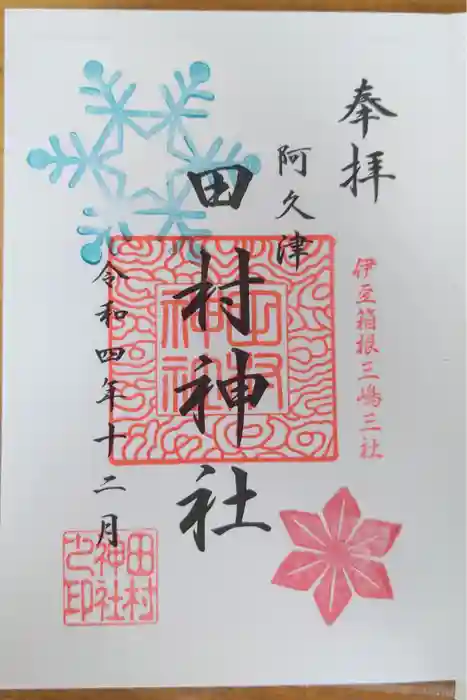 奉拝
伊豆箱根三嶋三社
阿久津
田村神社
田村神社
令和四年十二月
田村
神社
之印